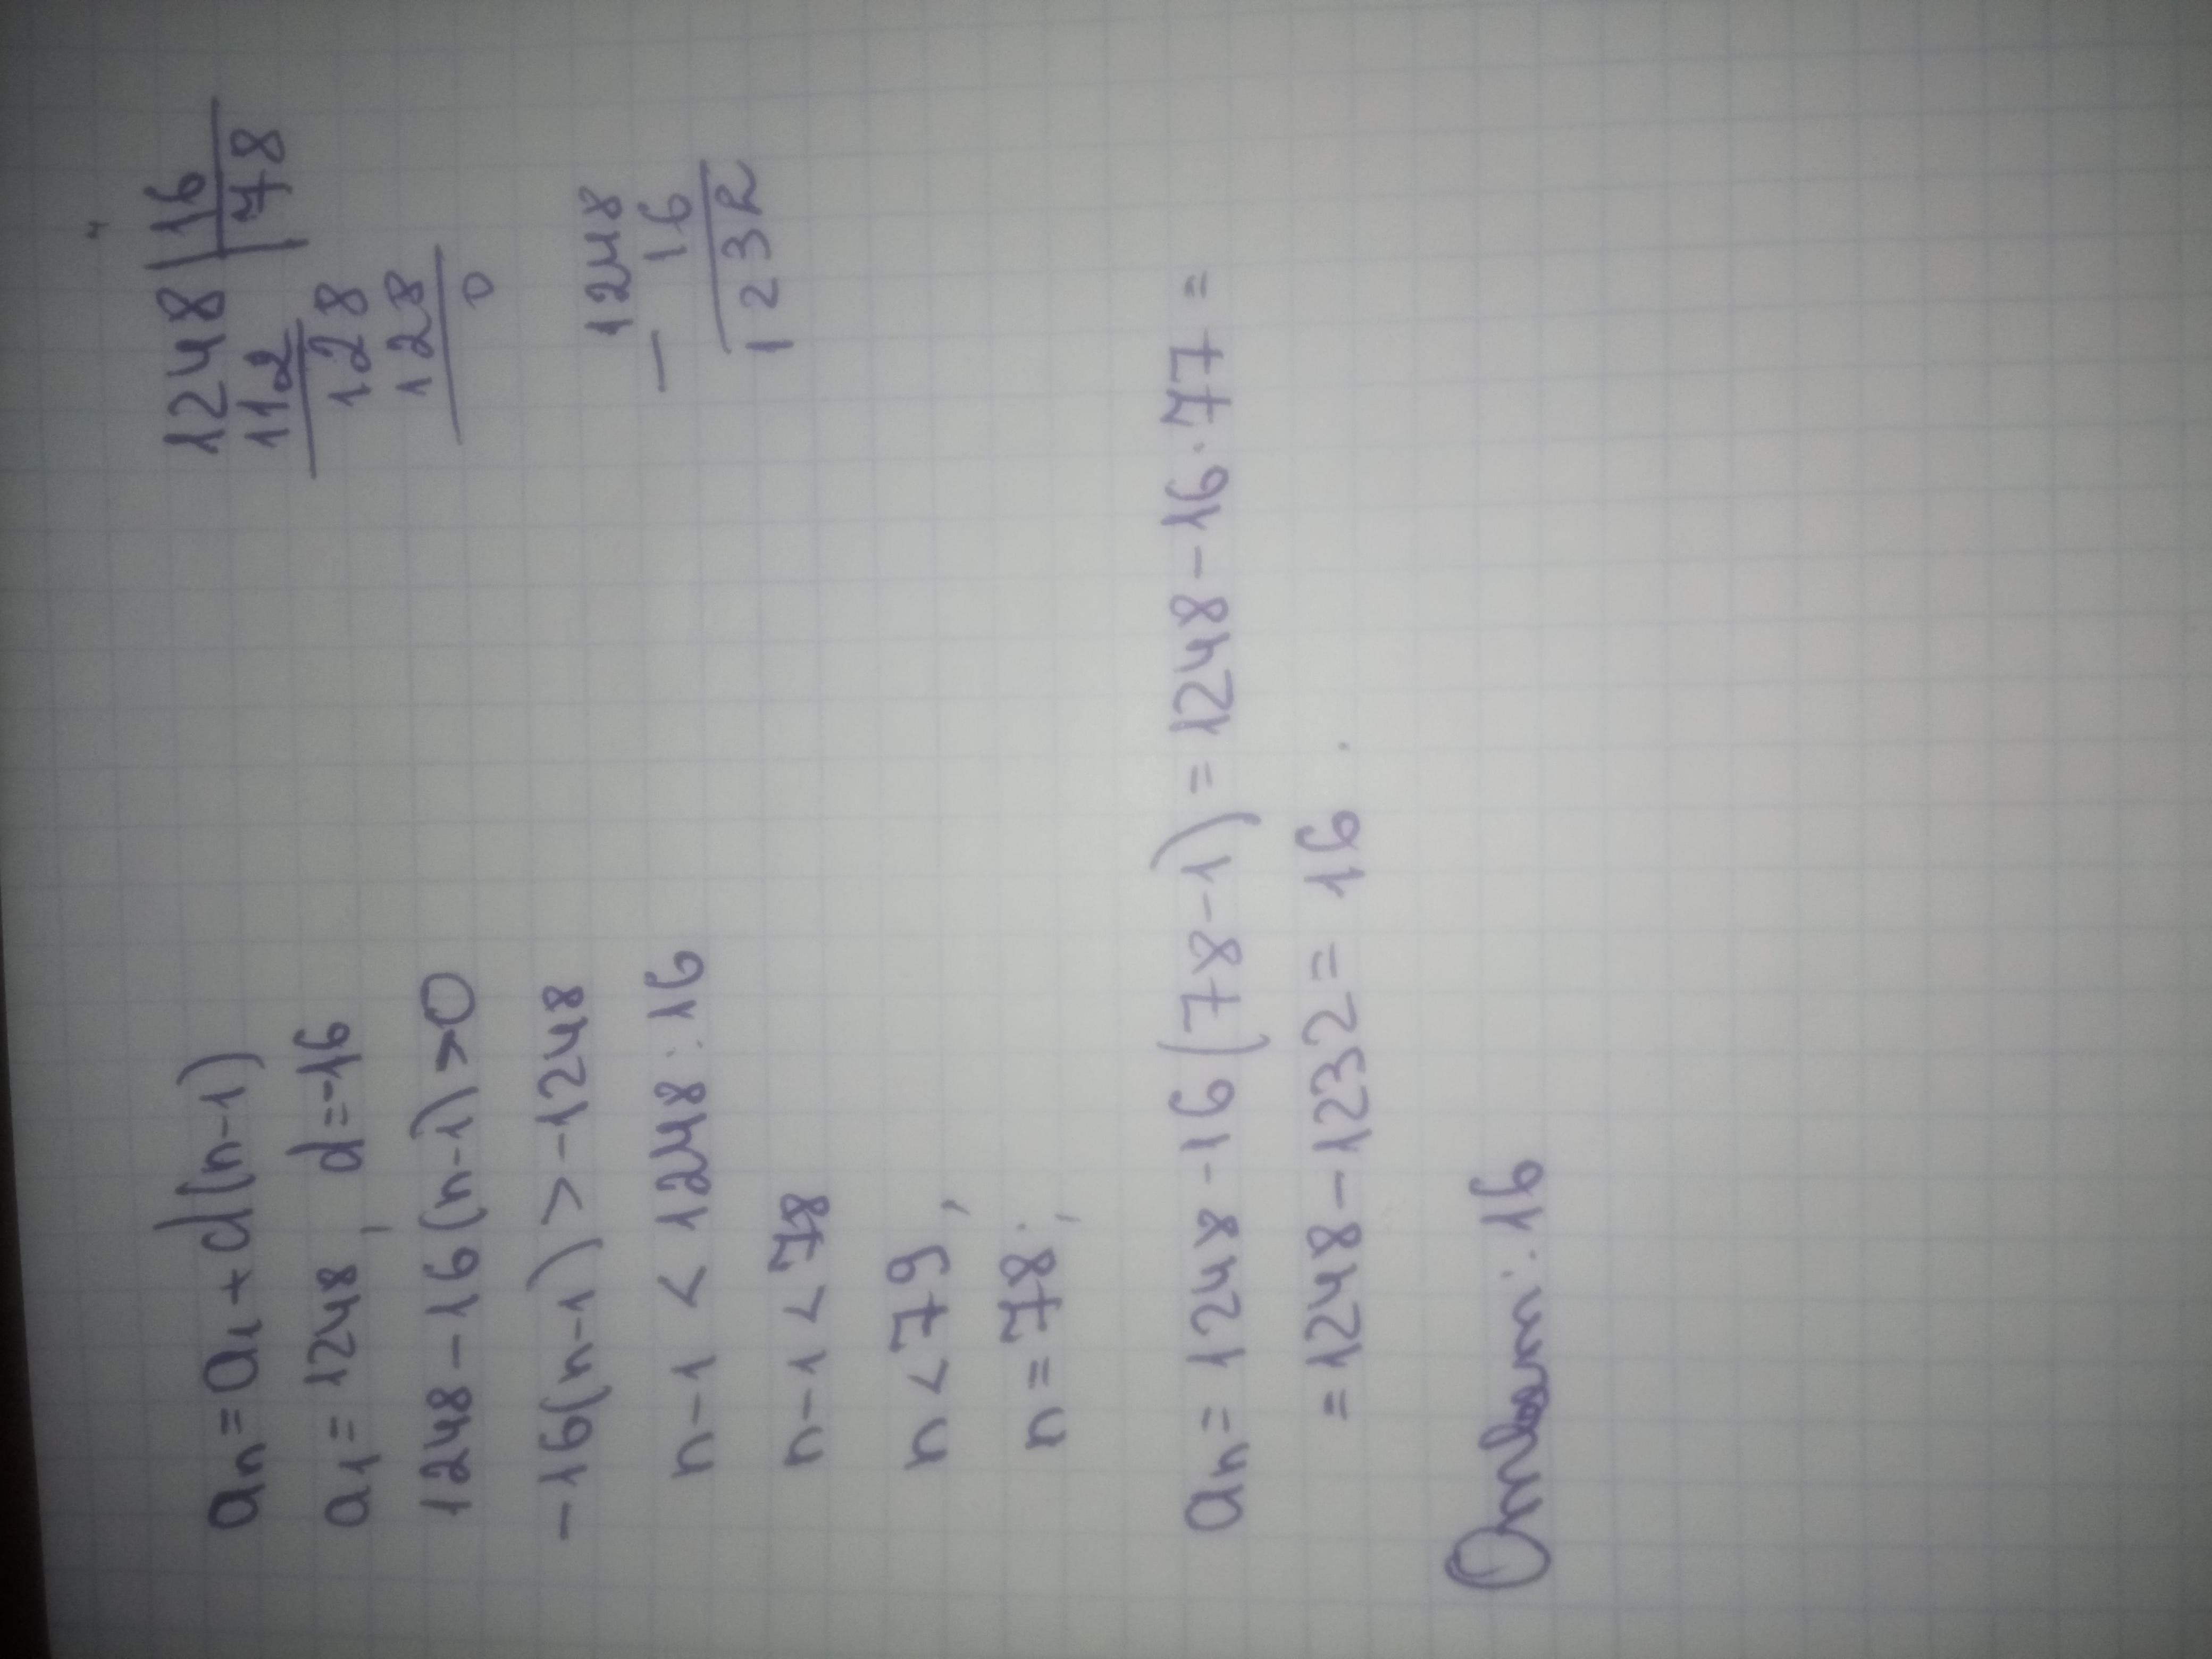 an = a1 + d(n-1)
a1 = 1248, d=-16
1248 - 16(n-1) > 0
-16(n-1) > -1248
n-1 < 1248:16
n-1 < 78
n < 79,
n = 78;
an = 1248 - 16(78-1) = 1248 - 16·77 =
= 1248 - 1232 = 16.
Ответ: 16
1248 | 16
112 | 78
128
128
0
- 1248
16
1232